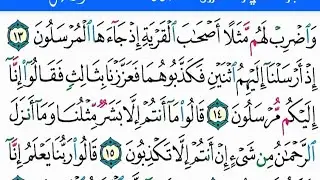 وَٱضۡرِبۡ لَهُم مَّثَلًا أَصۡحَٰبَ ٱلۡقَرۡيَةِ إِذۡ جَآءَهَا ٱلۡمُرۡسَلُونَ ١٣
إِذۡ أَرۡسَلۡنَآ إِلَيۡهِمُ ٱثۡنَيۡنِ فَكَذَّبُوهُمَا فَعَزَّزۡنَا بِثَالِثٖ فَقَالُوٓاْ إِنَّآ
إِلَيۡكُم مُّرۡسَلُونَ ١٤ قَالُواْ مَآ أَنتُمۡ إِلَّا بَشَرٞ مِّثۡلُنَا وَمَآ أَنزَلَ
ٱلرَّحۡمَٰنُ مِن شَيۡءٍ إِنۡ أَنتُمۡ إِلَّا تَكۡذِبُونَ ١٥ قَالُواْ رَبُّنَا يَعۡلَمُ إِنَّآ